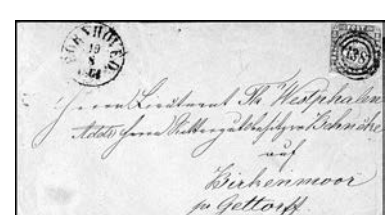 BORNHÖVED
19
8
138
Herrn Lieutenant Th. Westphalen
Adr. Herrn Rittergutsbesitzer Behncke
auf
Birkenmoor
pr Gettorff.